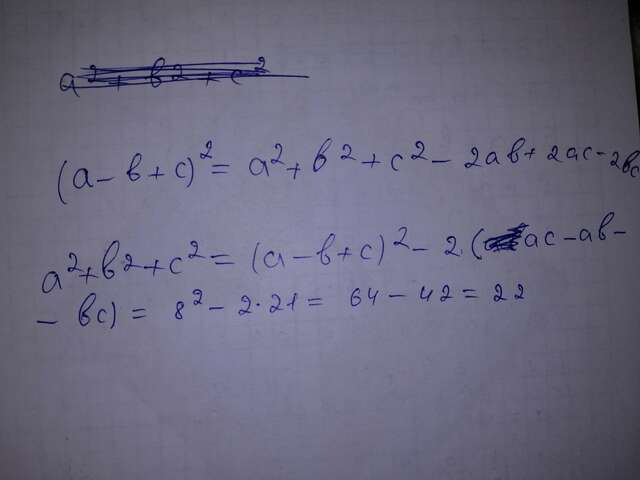 a² + в² + c²
(a - в + c)² = a² + в² + c² - 2aв + 2ac - 2вc
a² + в² + c² = (a - в + c)² - 2·(ac - aв -
- вc) = 8² - 2·21 = 64 - 42 = 22